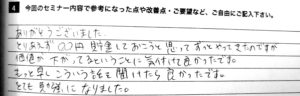 4 今回のセミナー内容で参考になった点や改善点・ご要望など、ご自由にご記入下さい。
ありがとうございました。
とりあえず〇〇円貯金しておこうと思ってずっとやってきたのですが
価値が下がってるということに気付けて良かったです。
もっと早くこういう話を聞けたら良かったです。
とても勉強になりました。